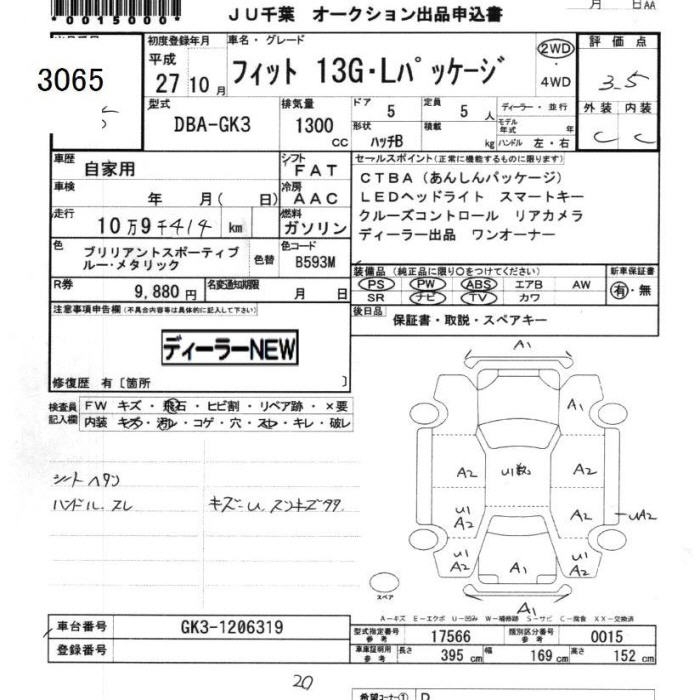 *0015000*
JU千葉 オークション出品申込書
月 日AA
3065
初度登録年月
平成
27 10月
車名・グレード
フィット 13G・Lパッケージ
2WD
・
4WD
評価点
3.5
外装 内装
C C
型式
DBA-GK3
排気量
1300
CC
ドア
5
定員
5人
形状
ハッチB
積載
kg
ディーラー・並行
モデル年式 年
ハンドル 左・右
車歴
自家用
シフト
FAT
車検
年 月( 日)
冷房
AAC
走行
10万9千414 km
燃料
ガソリン
色
ブリリアントスポーティブ
ルー・メタリック
色替
色コード
B593M
R券
9,880円
名変通知期限
月 日
セールスポイント(正常に機能するものに限ります)
CTBA(あんしんパッケージ)
LEDヘッドライト スマートキー
クルーズコントロール リアカメラ
ディーラー出品 ワンオーナー
装備品(純正品に限り○をつけてください)
PS PW ABS エアB AW
SR ナビ TV カワ
新車保証書
有・無
後日品
保証書・取説・スペアキー
注意事項申告欄(不具合内容等は具体的に記入して下さい)
ディーラーNEW
修復歴 有〔箇所 〕
検査員
記入欄
FW キズ・飛石・ヒビ割・リペア跡・×要
内装 キズ・汚レ・コゲ・穴・スレ・キレ・破レ
シートヘタリ
ハンドル.スレ
キズ=U.スンキズ99
A1
A1
A2
U1数
A2
U1
A2
A2
UA2
U1
A2
U1
A2
A1
A1
スペア
A-キズ E-エクボ U-凹み W-補修跡 S-サビ C-腐食 XX-交換済
車台番号
GK3-1206319
登録番号
型式指定番号
参考
17566
類別区分番号
参考
0015
車庫証明用
参考
長さ 395cm
幅 169cm
高さ 152cm
20
希望コーナー①
D